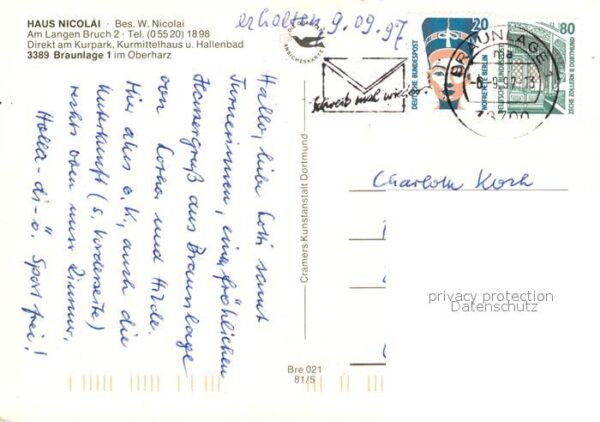 HAUS NICOLAI · Bes. W. Nicolai
Am Langen Bruch 2 · Tel. (0 55 20) 18 98
Direkt am Kurpark, Kurmittelhaus u. Hallenbad
3389 Braunlage 1 im Oberharz
erhalten, 9.09.97
ANSICHTSKARTE
Schreib mal wieder
20
DEUTSCHE BUNDESPOST
NOFRETETE BERLIN
80
DEUTSCHE BUNDESPOST
ZECHE ZOLLERN II DORTMUND
BRAUNLAGE 1
38700
Hallo, liebe Lotti samt
Turnerinnen, einen fröhlichen
Harzergruß aus Braunlage
von Lothar und Hilde.
Hier alles o.k., auch die
Unterkunft (s. Vorderseite)
rechts oben unser Zimmer.
Holla-di-ö. Sport frei!
Cramers Kunstanstalt Dortmund
Bre 021
81/5
Charlotte Koch
privacy protection
Datenschutz